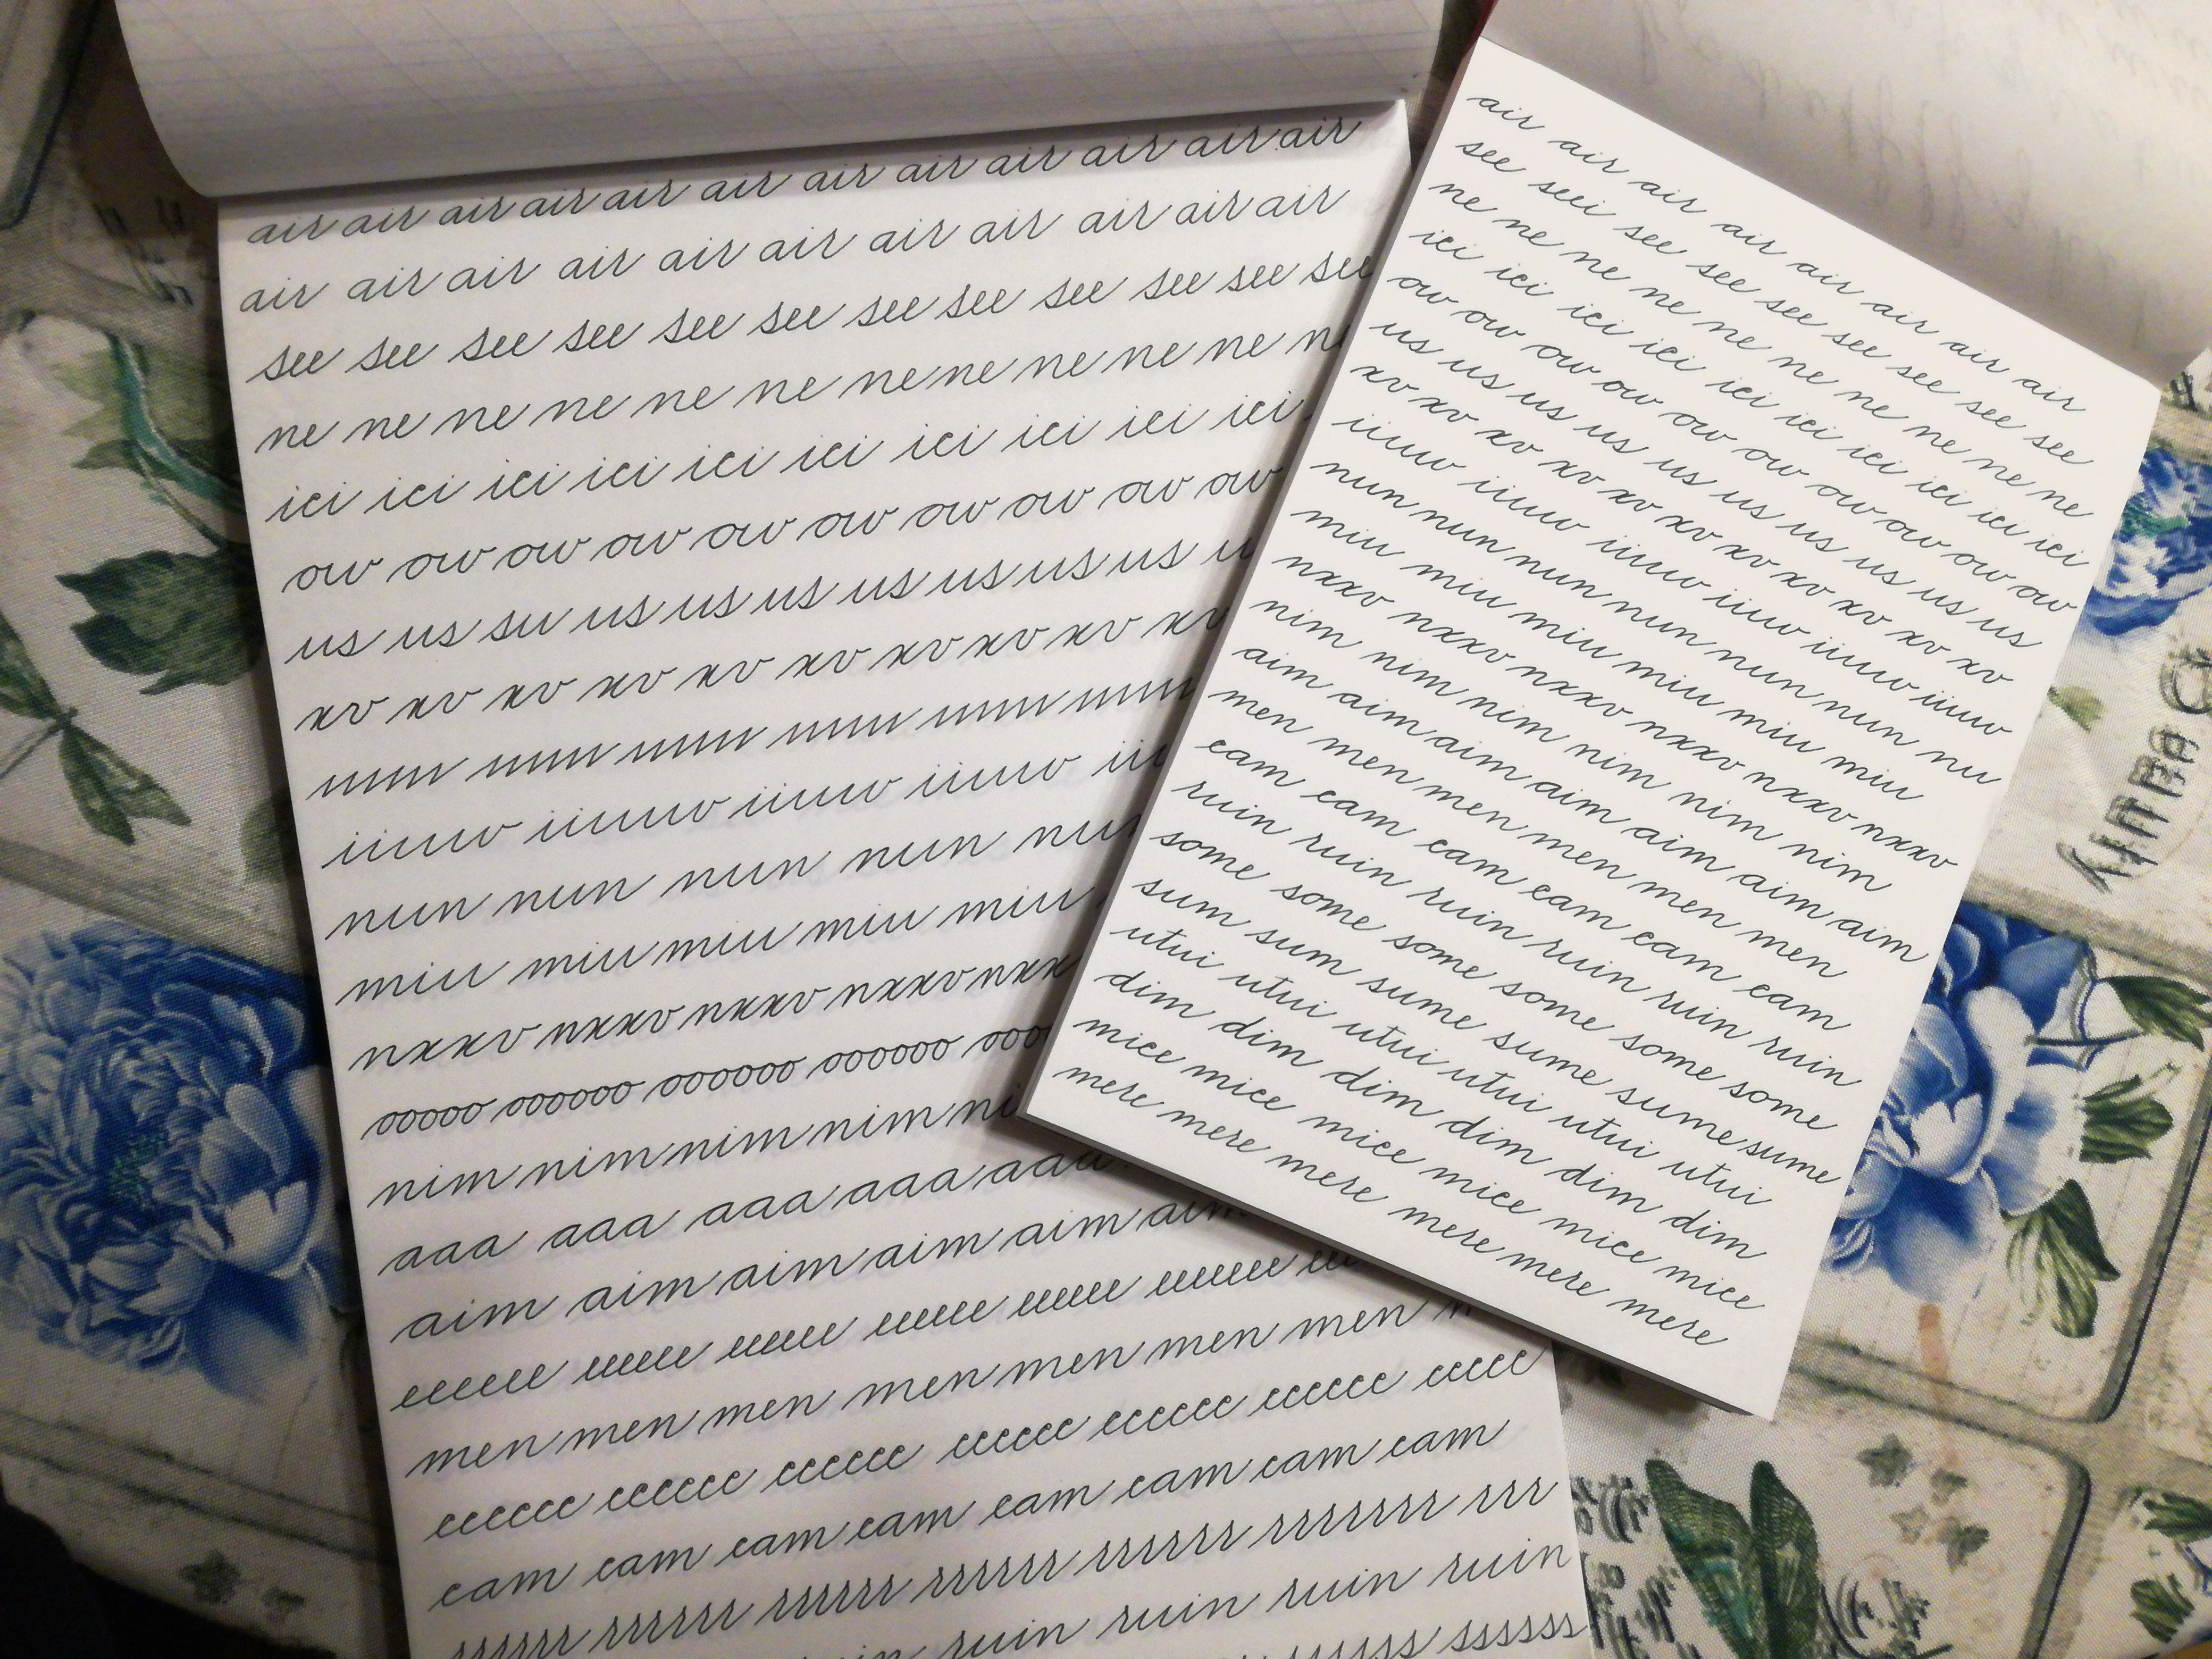 air air air air air air air air air air air air
air air air air air air air air air air air
see see see see see see see see see see see
ne ne ne ne ne ne ne ne ne ne ne
ici ici ici ici ici ici ici ici ici
ow ow ow ow ow ow ow ow ow ow
us us su us us us us us us us
xv xv xv xv xv xv xv xv xv xv
iiuw iiuw iiuw
nun nun nun nun
miu miu miu miu miu
nxxv nxxv nxxv nxxv
ooooo oooooo oooooo oooooo
nim nim nim nim
aaa aaa aaa aaa
aim aim aim aim aim
eeeeee eeeeee eeeeee eeeeee eeeeeee
men men men men men men men
cccccc cccccc cccccc cccccc cccccc cccccc ccccc
cam cam cam cam cam cam cam
rrrrrr rrrrrr rrrrrr rrrrrr rrrrrr rrrrrrr rrr
ruin ruin ruin ruin
ssssss
air air air air air air air air air
see seei see see see see see see see
ne ne ne ne ne ne ne ne ne ne
ici ici ici ici ici ici ici ici ici ici
ow ow ow ow ow ow ow ow ow ow
us us us us us us us us us us
xv xv xv xv xv xv xv xv xv xv
iiuw iiuw iiuw iiuw iiuw iiuw
nun nun nun nun nun nun nu
miu miu miu miu miu miu
nxxv nxxv nxxv nxxv nxxv nxxv
nim nim nim nim nim nim
aim aim aim aim aim aim aim
men men men men men men
cam cam cam cam cam cam
ruin ruin ruin ruin ruin ruin
some some some some some some
sum sum sume sume sume sume
utui utui utui utui utui utui
dim dim dim dim dim dim
mice mice mice mice mice mice
mere mere mere mere mere mere